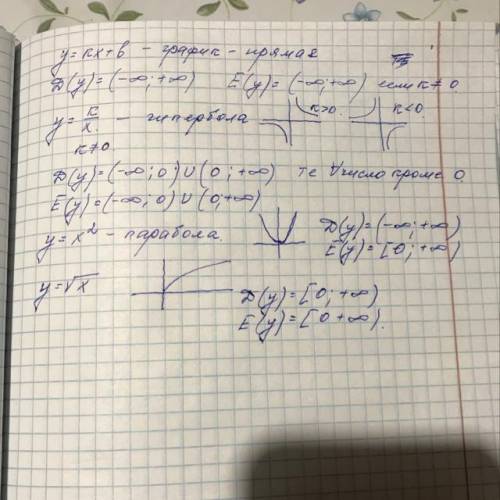 y=kx+b - график - прямая
D(y)=(-∞;+∞) E(y)=(-∞;+∞) если k≠0.
y=k/x - гипербола k>0 k<0
k≠0.
D(y)=(-∞;0)∪(0;+∞) те ∀число кроме 0.
E(y)=(-∞;0)∪(0;+∞)
y=x² - парабола. D(y)=(-∞;+∞)
E(y)=[0;+∞)
y=√x D(y)=[0;+∞)
E(y)=[0+∞).